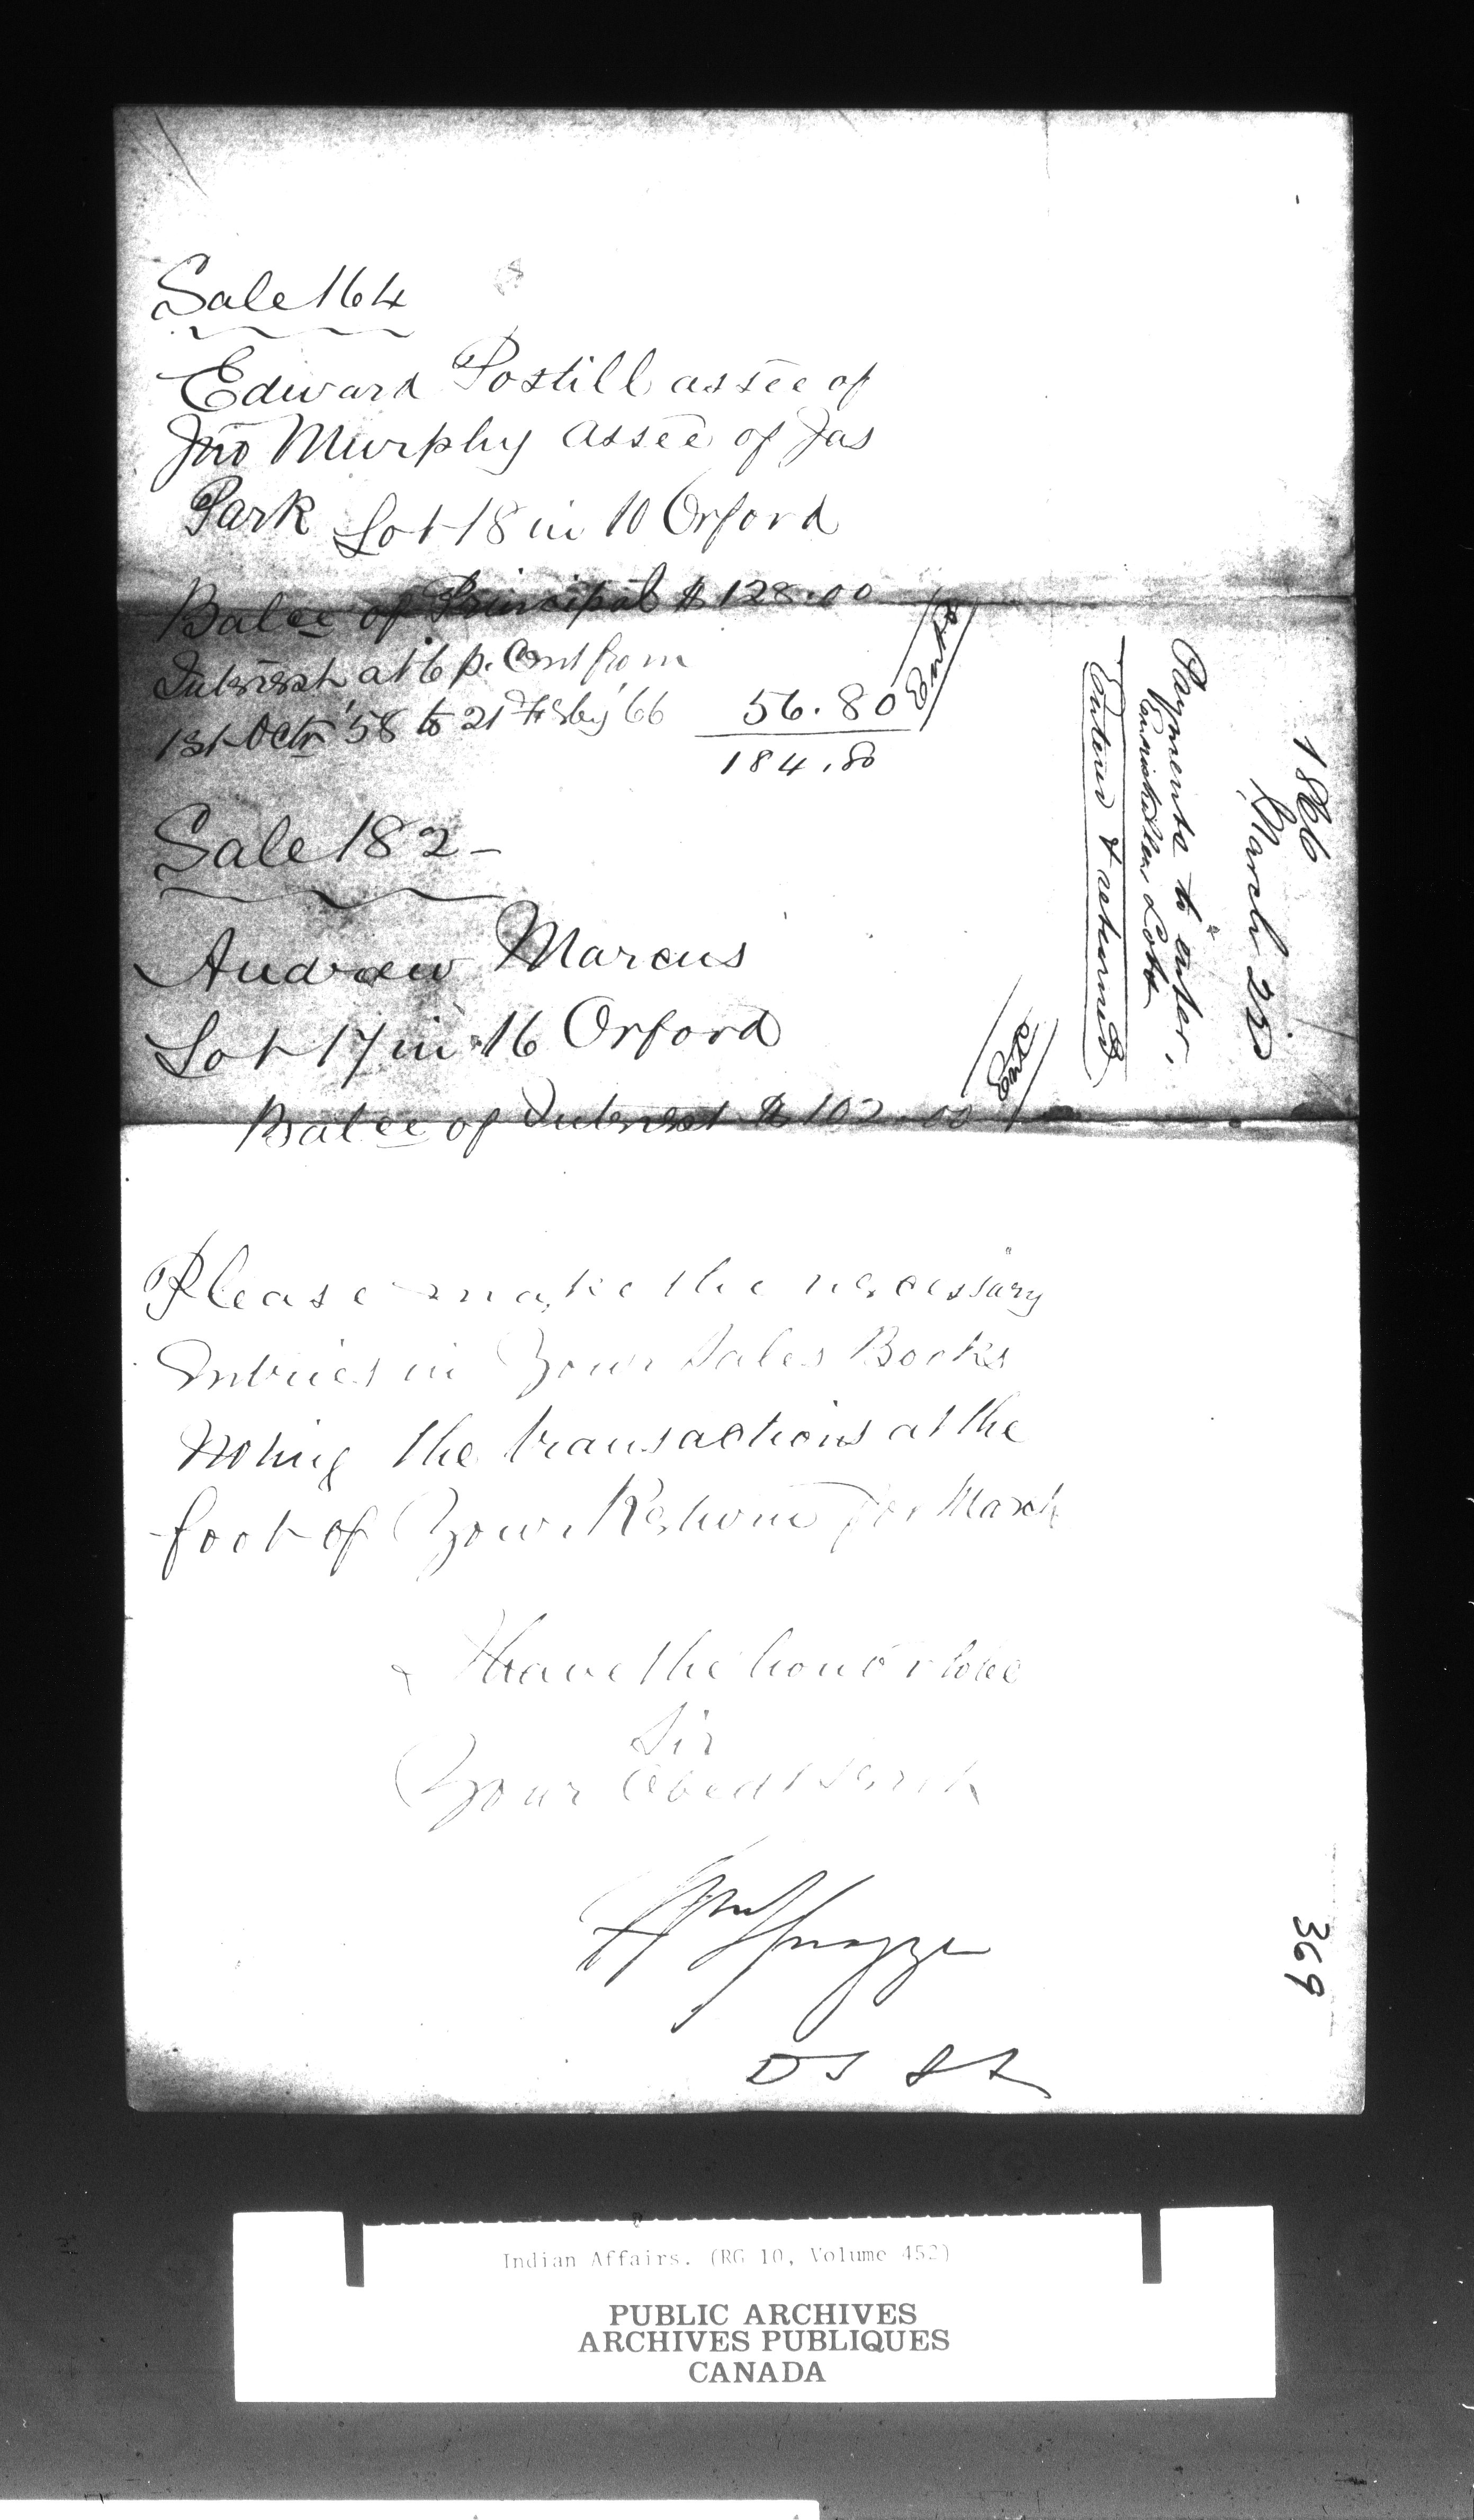 Sale 164
Edward Postill assee of
Jno Murphy assee of Jas
Park Lot 18 in 10 Orford
Balce of Principal $128.00
Interest at 6 p. Cent from
1st Octr '58 to 21 Feby '66 56.80
184.80
Sale 182-
Andrew Marcus
Lot 17 in 16 Orford
Balce of Interest $102.00
Please make the necessary
Entries in Your Sales Books
noting the transactions at the
foot of Your Return for March
I have the honor to be
Sir
Your Obedt Servt
Spragge
1866
March 23
Payments to enter,
Lots
Entered & returned
369
Indian Affairs. (RG 10, Volume 452)
PUBLIC ARCHIVES
ARCHIVES PUBLIQUES
CANADA